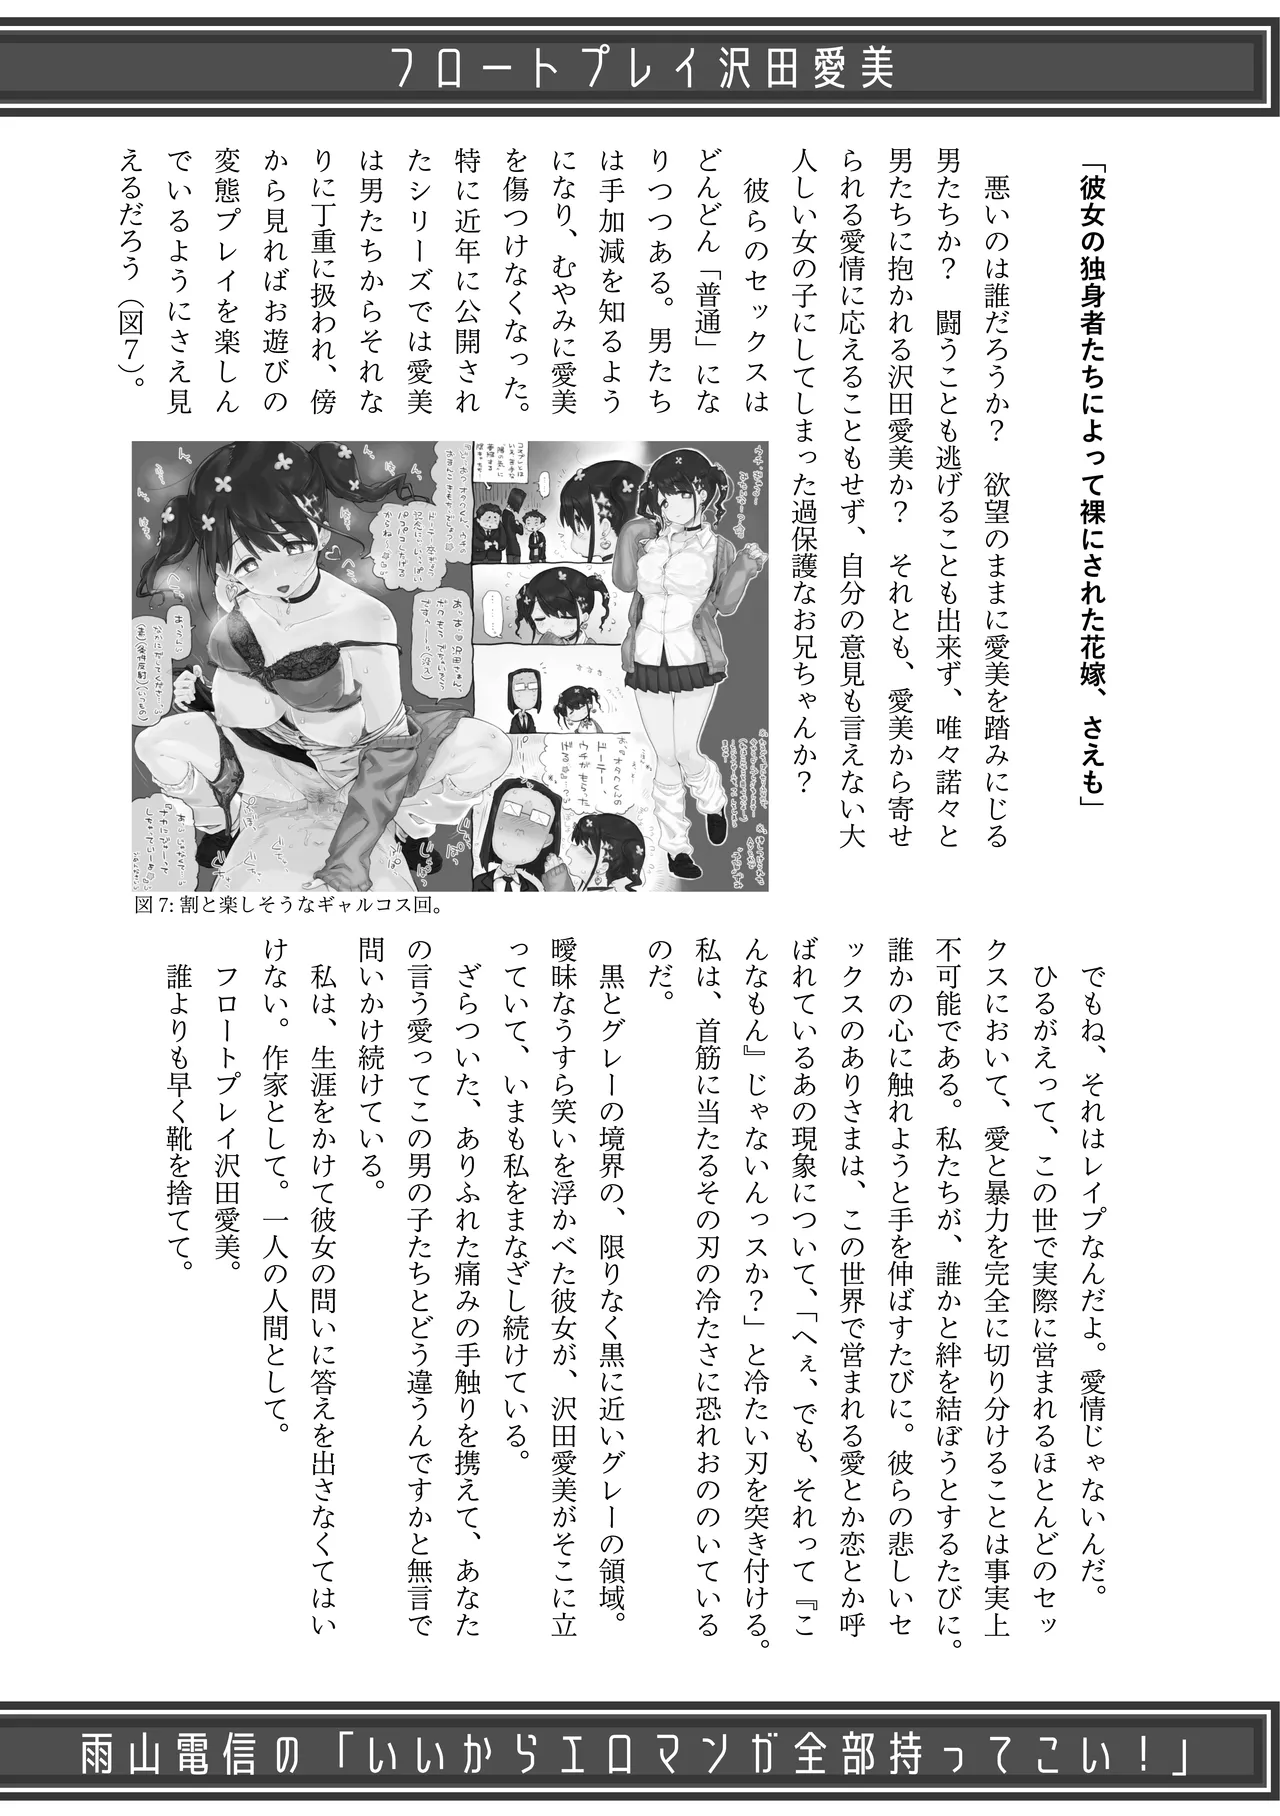 フロートプレイ沢田愛美
「彼女の独身者たちによって裸にされた花嫁、さえも」
悪いのは誰だろうか？　欲望のままに愛美を踏みにじる
男たちか？　闘うことも逃げることも出来ず、唯々諾々と
男たちに抱かれる沢田愛美か？　それとも、愛美から寄せ
られる愛情に応えることもせず、自分の意見も言えない大
人しい女の子にしてしまった過保護なお兄ちゃんか？
彼らのセックスは
どんどん「普通」にな
りつつある。男たち
は手加減を知るよう
になり、むやみに愛美
を傷つけなくなった。
特に近年に公開され
たシリーズでは愛美
は男たちからそれな
りに丁重に扱われ、傍
から見ればお遊びの
変態プレイを楽しん
でいるようにさえ見
えるだろう（図7）。
図 7: 割と楽しそうなギャルコス回。
でもね、それはレイプなんだよ。愛情じゃないんだ。
ひるがえって、この世で実際に営まれるほとんどのセッ
クスにおいて、愛と暴力を完全に切り分けることは事実上
不可能である。私たちが、誰かと絆を結ぼうとするたびに。
誰かの心に触れようと手を伸ばすたびに。彼らの悲しいセ
ックスのありさまは、この世界で営まれる愛とか恋とか呼
ばれているあの現象について、「へぇ、でも、それって『こ
んなもん』じゃないんっスか？」と冷たい刃を突き付ける。
私は、首筋に当たるその刃の冷たさに恐れおののいている
のだ。
黒とグレーの境界の、限りなく黒に近いグレーの領域。
曖昧なうすら笑いを浮かべた彼女が、沢田愛美がそこに立
っていて、いまも私をまなざし続けている。
ざらついた、ありふれた痛みの手触りを携えて、あなた
の言う愛ってこの男の子たちとどう違うんですかと無言で
問いかけ続けている。
私は、生涯をかけて彼女の問いに答えを出さなくてはい
けない。作家として。一人の人間として。
フロートプレイ沢田愛美。
誰よりも早く靴を捨てて。
雨山電信の「いいからエロマンガ全部持ってこい！」